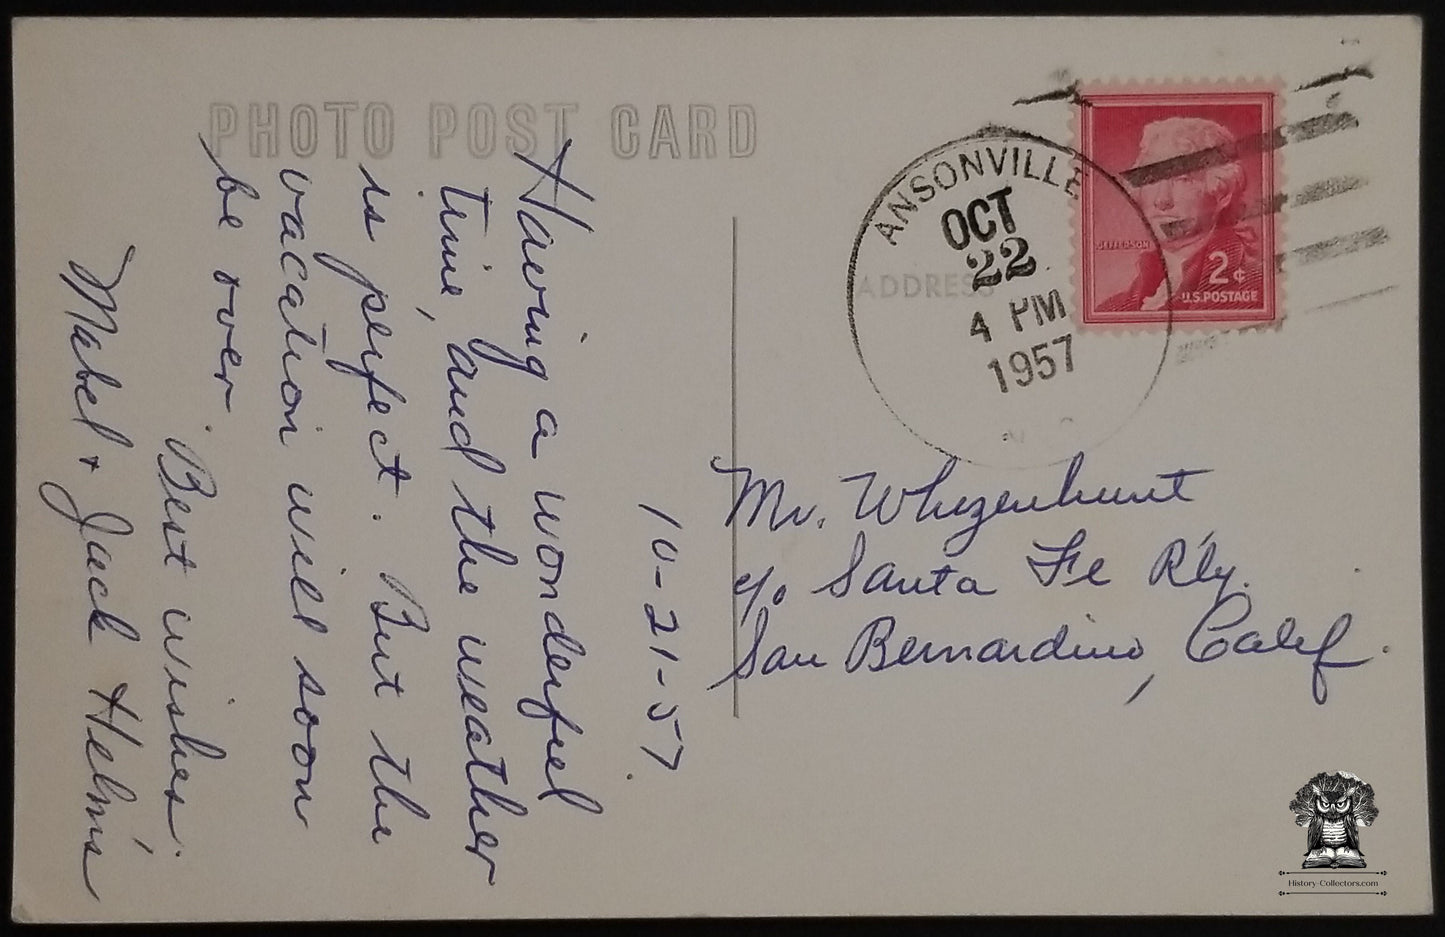 PHOTO POST CARD
10-21-57.
Having a wonderful
time, and the weather
is perfect. But the
vacation will soon
be over.
Best wishes,
Mabel + Jack Helms
ADDRESS
ANSONVILLE
OCT
22
4 PM
1957
JEFFERSON
2¢
U.S. POSTAGE
Mr. Whizenhunt
c/o Santa Fe Rly.
San Bernardino, Calif.
History-Collectors.com